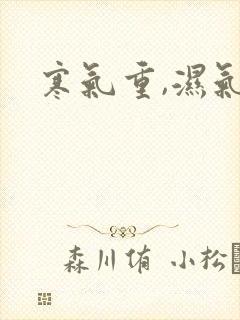 寒氣重,濕氣
森川侑 小松